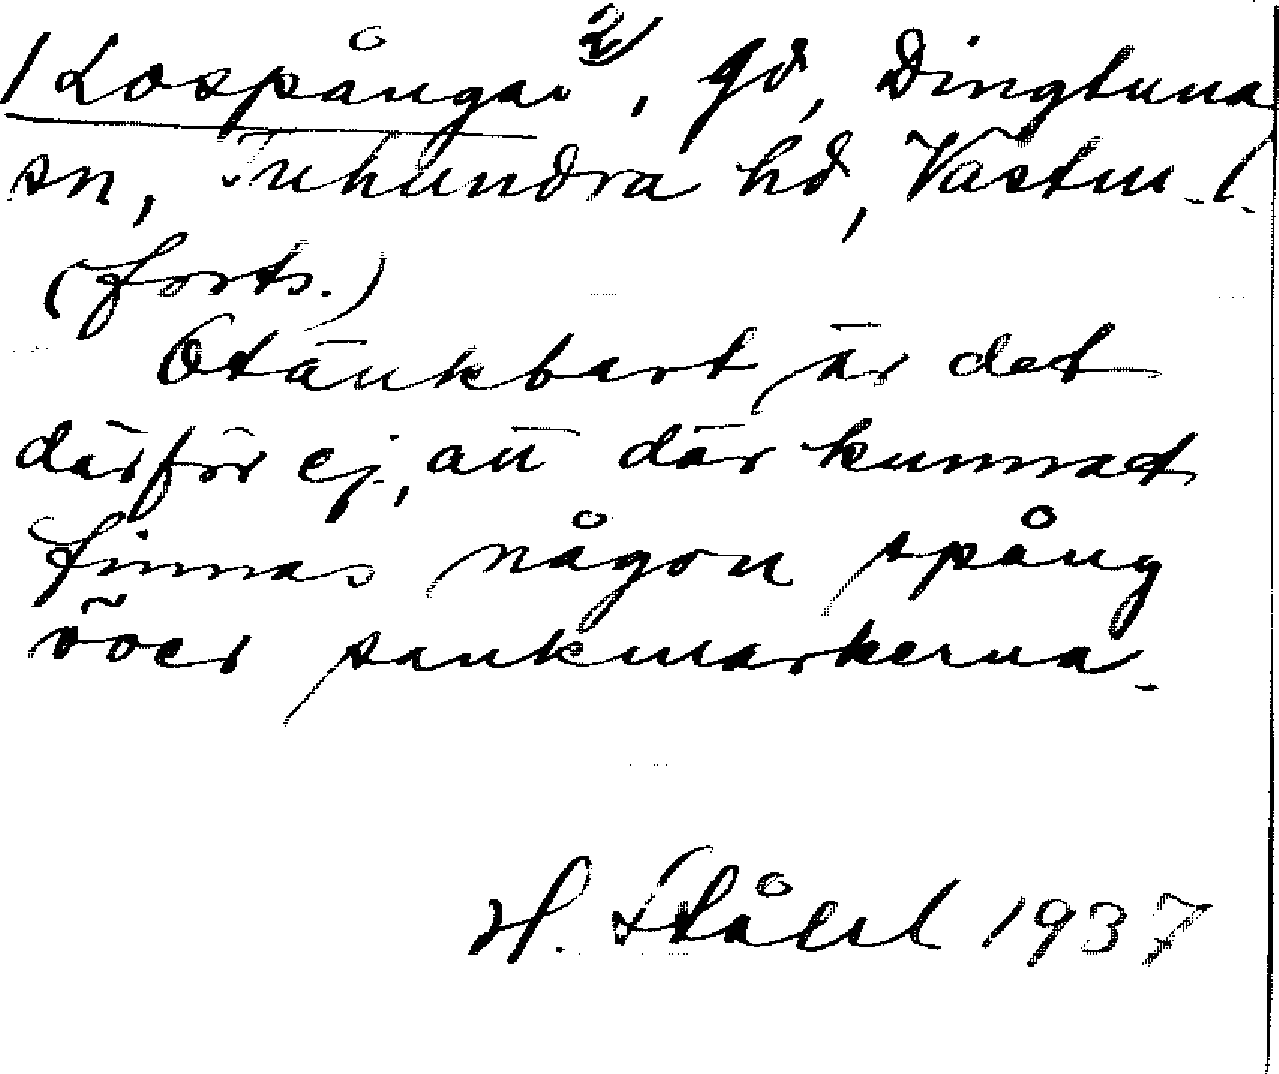 / Lospångar 2/, gd, Dingtuna
sn, Tuhundra hd, Västm. l.
(forts.)
Otänkbart är det
därför ej, att där kunnat
finnas någon spång
över sankmarkerna.
H. Ståhl 1937